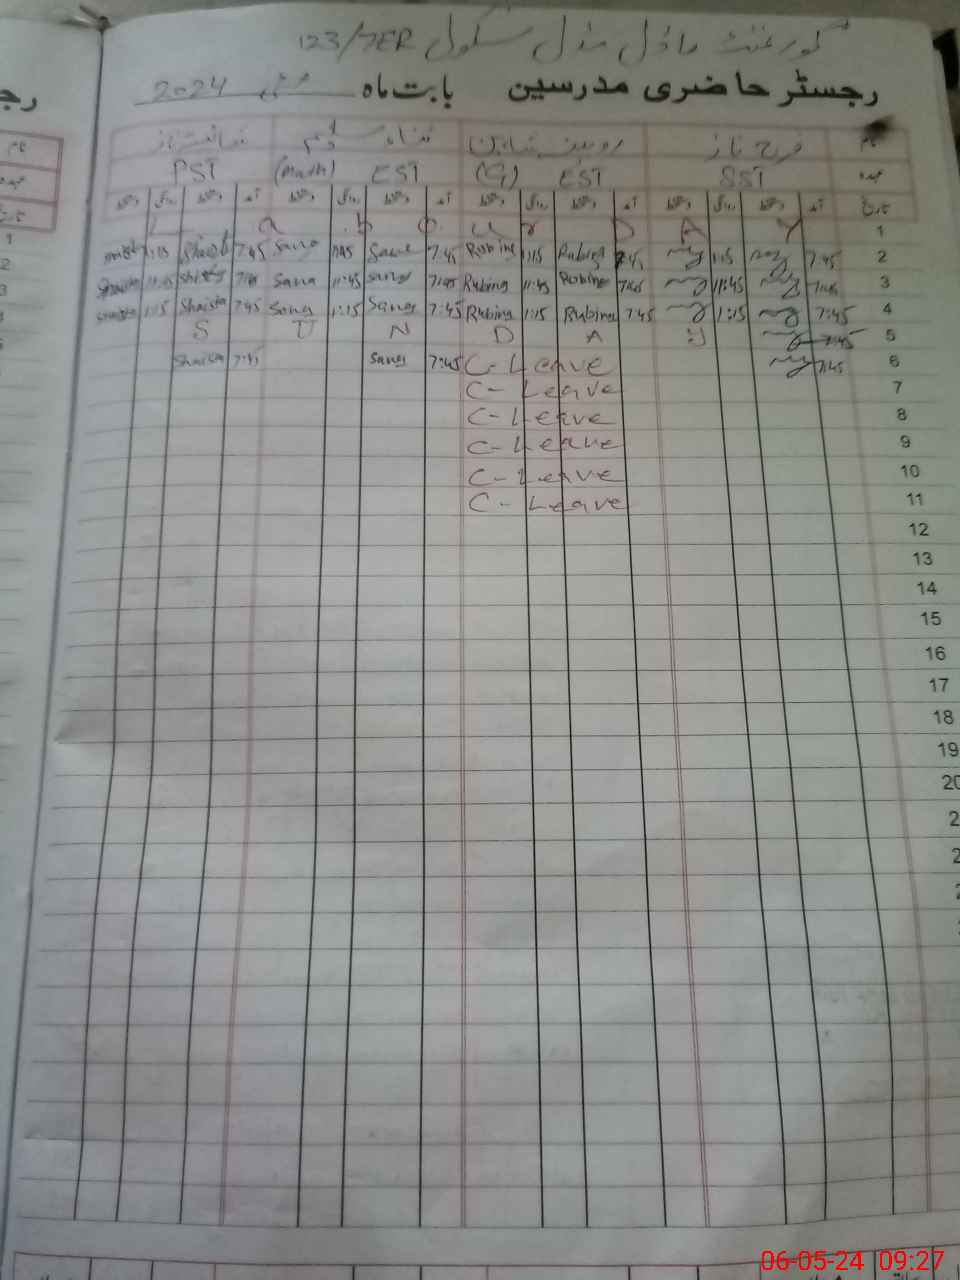 گورنمنٹ ماڈل مڈل سکول 123/7ER
رجسٹر حاضری مدرسین بابت ماہ مئی 2024
نام فرح ناز روبینہ شاہین ثناء سلیم
عہدہ SST EST (G) EST (Math) PST
تاریخ آمد دستخط روانگی دستخط آمد دستخط روانگی دستخط آمد دستخط روانگی دستخط آمد دستخط روانگی دستخط
1 L a b o u r D A Y
2 7:45 1:15 7:45 Rubina 1:15 Rubina 7:45 Sana Sana 7:45 1:15
3 7:45 11:45 7:45 Rubina 11:45 Rubina 7:45 Sana 11:45 Sana 7:45 11:45
4 7:45 1:15 7:45 Rubina 1:15 Rubina 7:45 Sana 1:15 Sana 7:45 Shaista 1:15 Shaista
5 S U N D A Y 7:45
6 7:45 C-Leave 7:45 Sana 7:45 Shaista
7 C-Leave
8 C-Leave
9 C-Leave
10 C-Leave
11 C-Leave
12
13
14
15
16
17
18
19
06-05-24 09:27